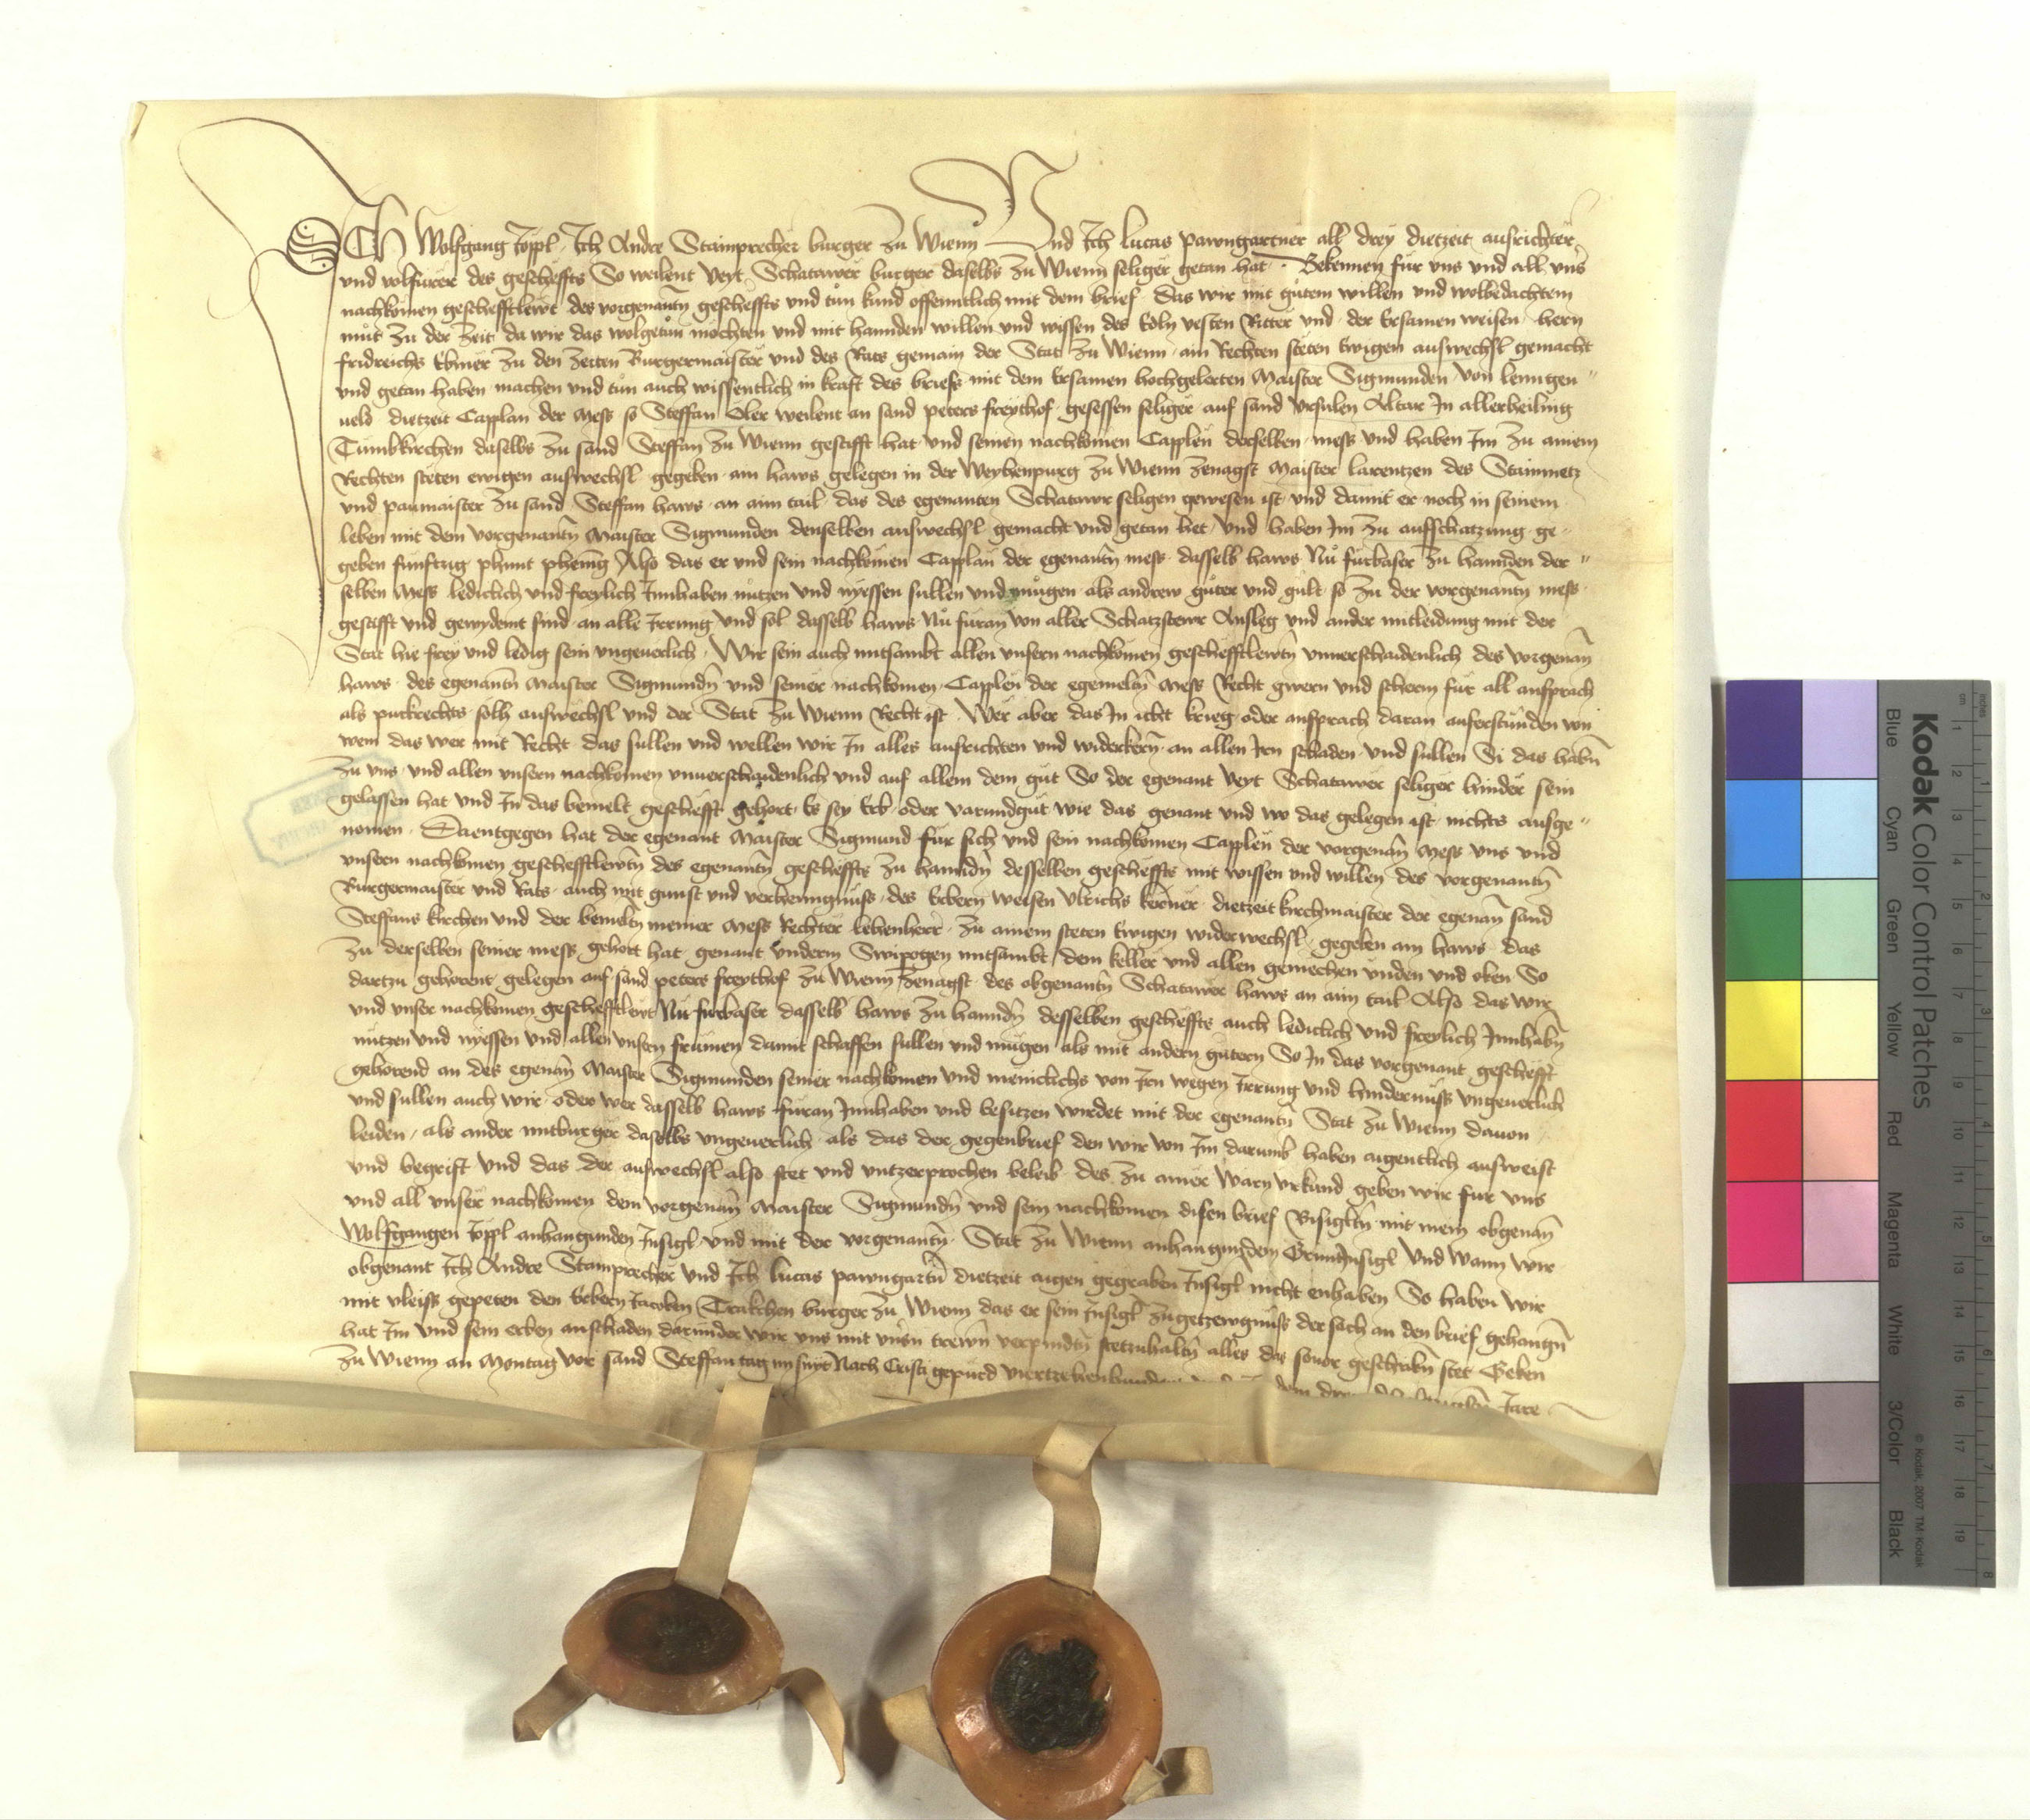 ICh Wolfgang Töppl Ich Andre Stainprecher burger zu Wienn Und Ich Lucas pawngartner all drey dietzeit ausrichter
und volfürer des gescheffts So weilent Veyt Schatawer burger daselbs zu Wienn seliger getan hat Bekennen für uns und all uns
nachkomen geschefftlewt des vorgenantn gescheffts und tun kund offenntlich mit dem brief Das wir mit gutem willen und wolbedachtem
mut zu der zeit da wir das wolgetun mochten und mit hannden willen und wissen des Edln vesten Ritter und der Ersamen weisen hern
fridreichs Ebmer zu den zeiten Burgermaister und des Rats gemain der Stat zu Wienn ain Rechten steten Ewigen auswechsl gemacht
und getan haben machen und tun auch wissentlich in kraft des briefs mit dem Ersamen hochgelerten Maister Sigmunden von lenngen
veld dietzeit Capplan der Mess so Steffan Öler weilent an sand peters freythof gesessen seliger auf sand Ursulen Altar In allerheiling
Tumbkirchen daselbs zu sand Steffan zu Wienn gestifft hat und seinen nachkomen Capplen derselben mess und haben Im zu ainem
Rechten steten ewigen auswechsl gegeben ain haws gelegen in der Weyhenpurg zu Wienn zenagst Maister larentzen des Stainmetz
und paumaister zu sand Steffan haws an aim tail das des egenanten Schatawr seligen gewesen ist und damit er noch in seinem
leben mit dem vorgenantn Maister Sigmunden denselben auswechsl gemacht und getan het und haben Im zu aufschatzung ge
geben funftzig phunt phening Also das er und sein nachkomen Capplan der egenantn mess dasselb haws Nu furbaser zu hannden der
selben Mess ledictich und freylich Innhaben nutzen und nyessen sullen und mugen als andrew guter und gult so zu der vorgenantn mess
gestifft und gewydemt sind an alle Irrung und sol dasselb haws Nu furan von aller Schatzstewr Ansleg und ander mitleidung mit der
Stat hie frey und ledig sein ungeverlich Wir sein auch mitsambt allen unsern nachkomen geschefftlewtn unverschaidenlich des vorgenan
haws des egenantn Maister Sigmundn und seiner nachkomen Capplen der egemeltn Mess Recht gwern und scherm für all ansprach
als purkrechts solh auswechsl und der Stat zu Wienn Recht ist Wer aber das In icht krieg oder ansprach daran auferstunden von
wem das wer mit Recht das sullen und wellen wir In alles ausrichten und widerkern an allen Irn schaden Und sullen Si das habn
zu uns und allen unsern nachkomen unverschaidenlich und auf allem dem gut So der egenant Veyt Schatawer seliger hinder sein
gelassen hat und In das bemelt geschefft gehort Es sey Erb oder varundgut wie das genant und wo das gelegen ist nichts ausge
nomen Daentgegen hat der egenant Maister Sigmund für sich und sein nachkomen Capplen der vorgenan Mess uns und
unsern nachkomen geschefftlewtn des egenantn gescheffts zu hanndn desselben gescheffts mit wissen und willen des vorgenantn
Burgermaister und Rats auch mit gunst und verhenngnuss des Erbern weisen Ulrichs kerner dietzeit kirchmaister der egenan sand
Steffans kirchen und der bemeltn meiner Mess Rechter lehenherr zu ainem steten Ewigen widerwechsl gegeben ain haws das
zu derselben seiner mess gehort hat genant underm Swipogen mitsambt dem keller und allen gemechen unden und oben So
dartzu gehorent gelegen auf sand peters freythof zu Wienn zenagst des obgenantn Schatawer haws an aim tail Also das wir
und unser nachkomen geschefftlewt Nu furbaser dasselb haws zu hanndn desselben gescheffts auch ledictich und freylich Innhabn
nutzen und nyessen und allen unsern frumen damit schaffen sullen und mugen als mit andern gutern So In das vorgenant geschefft
gehorend an des egenan Maister Sigmunden seiner nachkomen und menictichs von Irn wegen Irrung und hindernuss ungeverlich
und sullen auch wir oder wer dasselb haws furan Innhaben und besitzen wirdet mit der egenantn Stat zu Wienn davon
leiden als ander mitburger daselbs ungeverlich als das der gegenbrief den wir von Im darumb haben aigentlich ausweist
und begrift Und das der auswechsl also stet und untzerprochen beleib des zu ainer Warn urkund geben wir fur uns
und all unser nachkomen dem vorgenan Maister Sigmundn und sein nachkomen disen brief Besigltn mit mein obgenan
Wolfgangen Töppl anhangunden Insigl und mit der vorgenantn Stat zu Wienn anhangundem GruntInsigl Und wann wir
obgenant Ich Andre Stainprecher und Ich Lucas pawngartn dietzeit aigen gegraben Insigl nicht enhaben So haben wir
mit vleiss gepeten den Erbern Jacoben burger zu Wienn das er sein Insigl zugetzewgnuss der sach an den brief gehangn
hat Im und sein erben anschaden darunder wir uns mit unsn trewn verpindtn stetzuhaltn alles das sovor geschribn stet Geben
zu Wienn an Montag vor sand Steffan tag im snyt Nach Cristi gepurd viertzehenhundert Jare
Kodak Color Control Patches
© Kodak, 2007 TM: Kodak
Blue Cyan Green Yellow Red Magenta White 3/Color Black
cm 1 2 3 4 5 6 7 8 9 10 11 12 13 14 15 16 17 18 19
inches 1 2 3 4 5 6 7 8